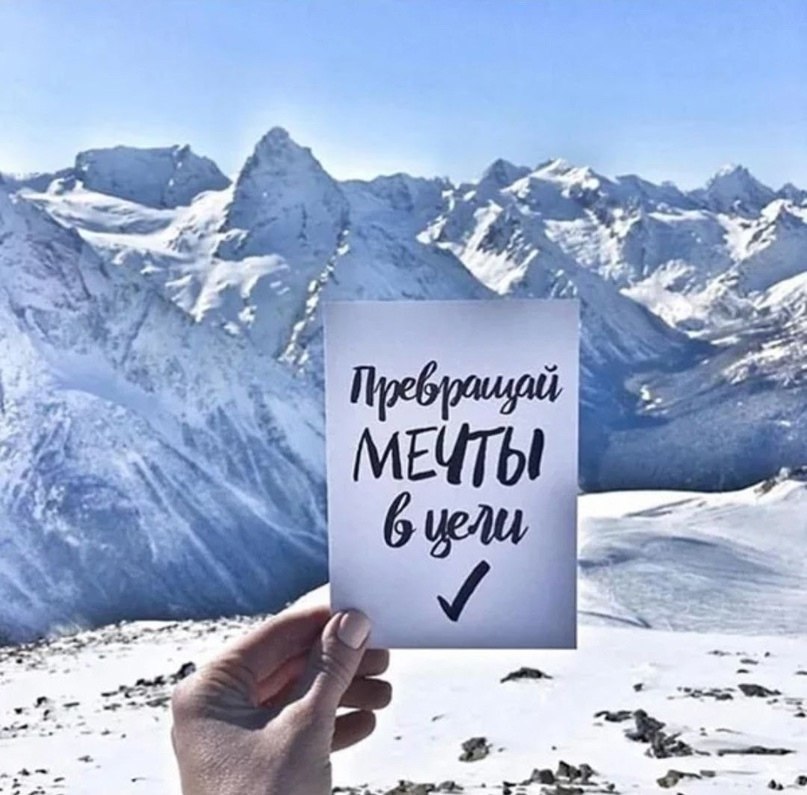 Превращай
МЕЧТЫ
в цели
✓